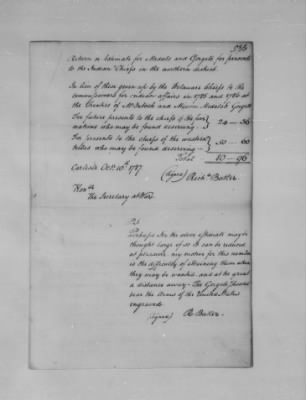 Return or Estimate for Medals and Gorgets, for presents
to the Indian Chiefs in the northern district.
In lieu of those given up by the Delaware Chiefs to the
commissioners for indian affairs in 1785 and 1786 at
the Treaties of McIntosh and Miami Medals & Gorgets
For future presents to the chiefs of the
nations who may be found deserving 24 — 36
For presents to the chiefs of the
tribes who may be found deserving
Total 96
Carlisle Oct. 10th 1787.
(Signed) Richd. Butler
Honble
The Secretary at War
P.S.
Perhaps the may be
thought large if so it can be reduced
at pleasure my motive for this number
is the difficulty of obtaining them when
they may be wanted and at the great
a distance away — The Gorgets should
bear the Arms of the United States
engraved.
(Signed) R. Butler